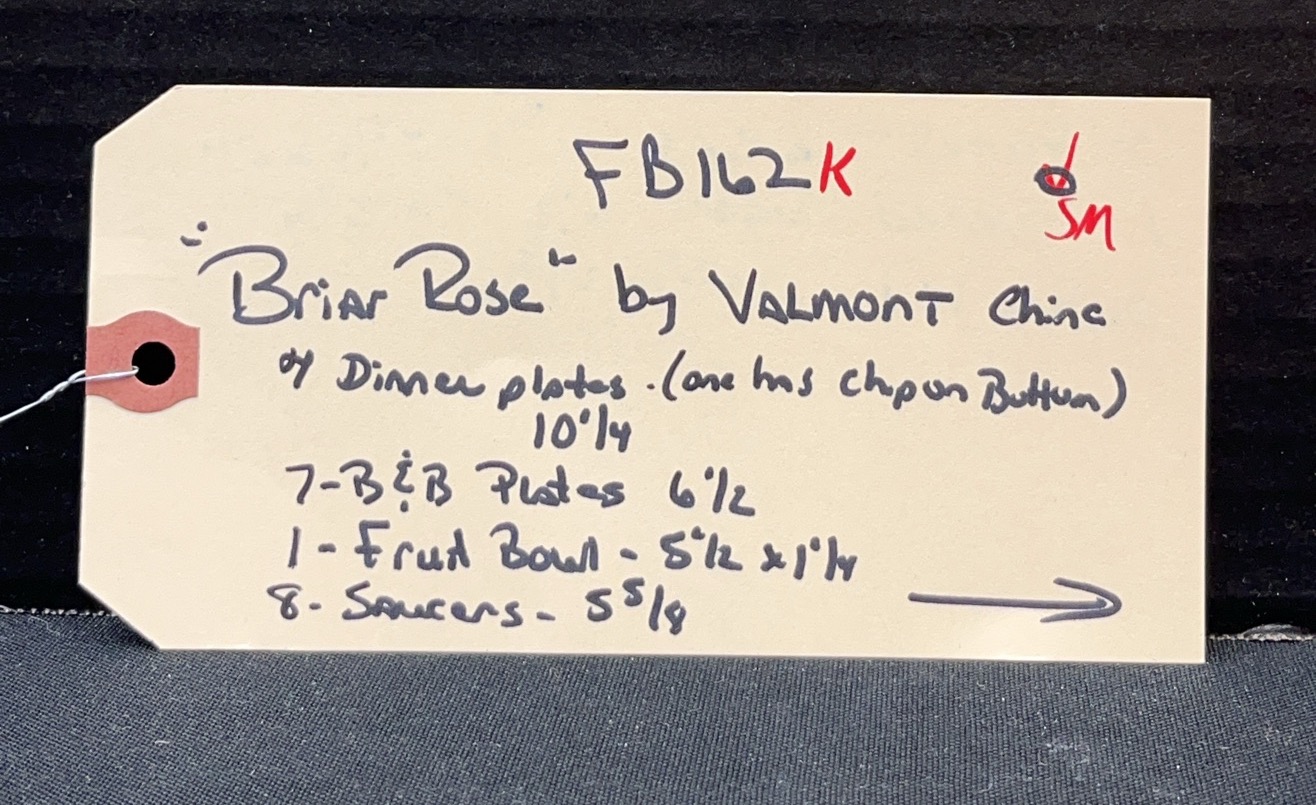 FB162K
SM
"Briar Rose" by VALMONT China
Dinner plates. (one has chip on Bottom)
10 1/4
7-B & B Plates 6 1/2
1 - Fruit Bowl - 5 1/2 x 1 1/4
8- Saucers - 5 5/8